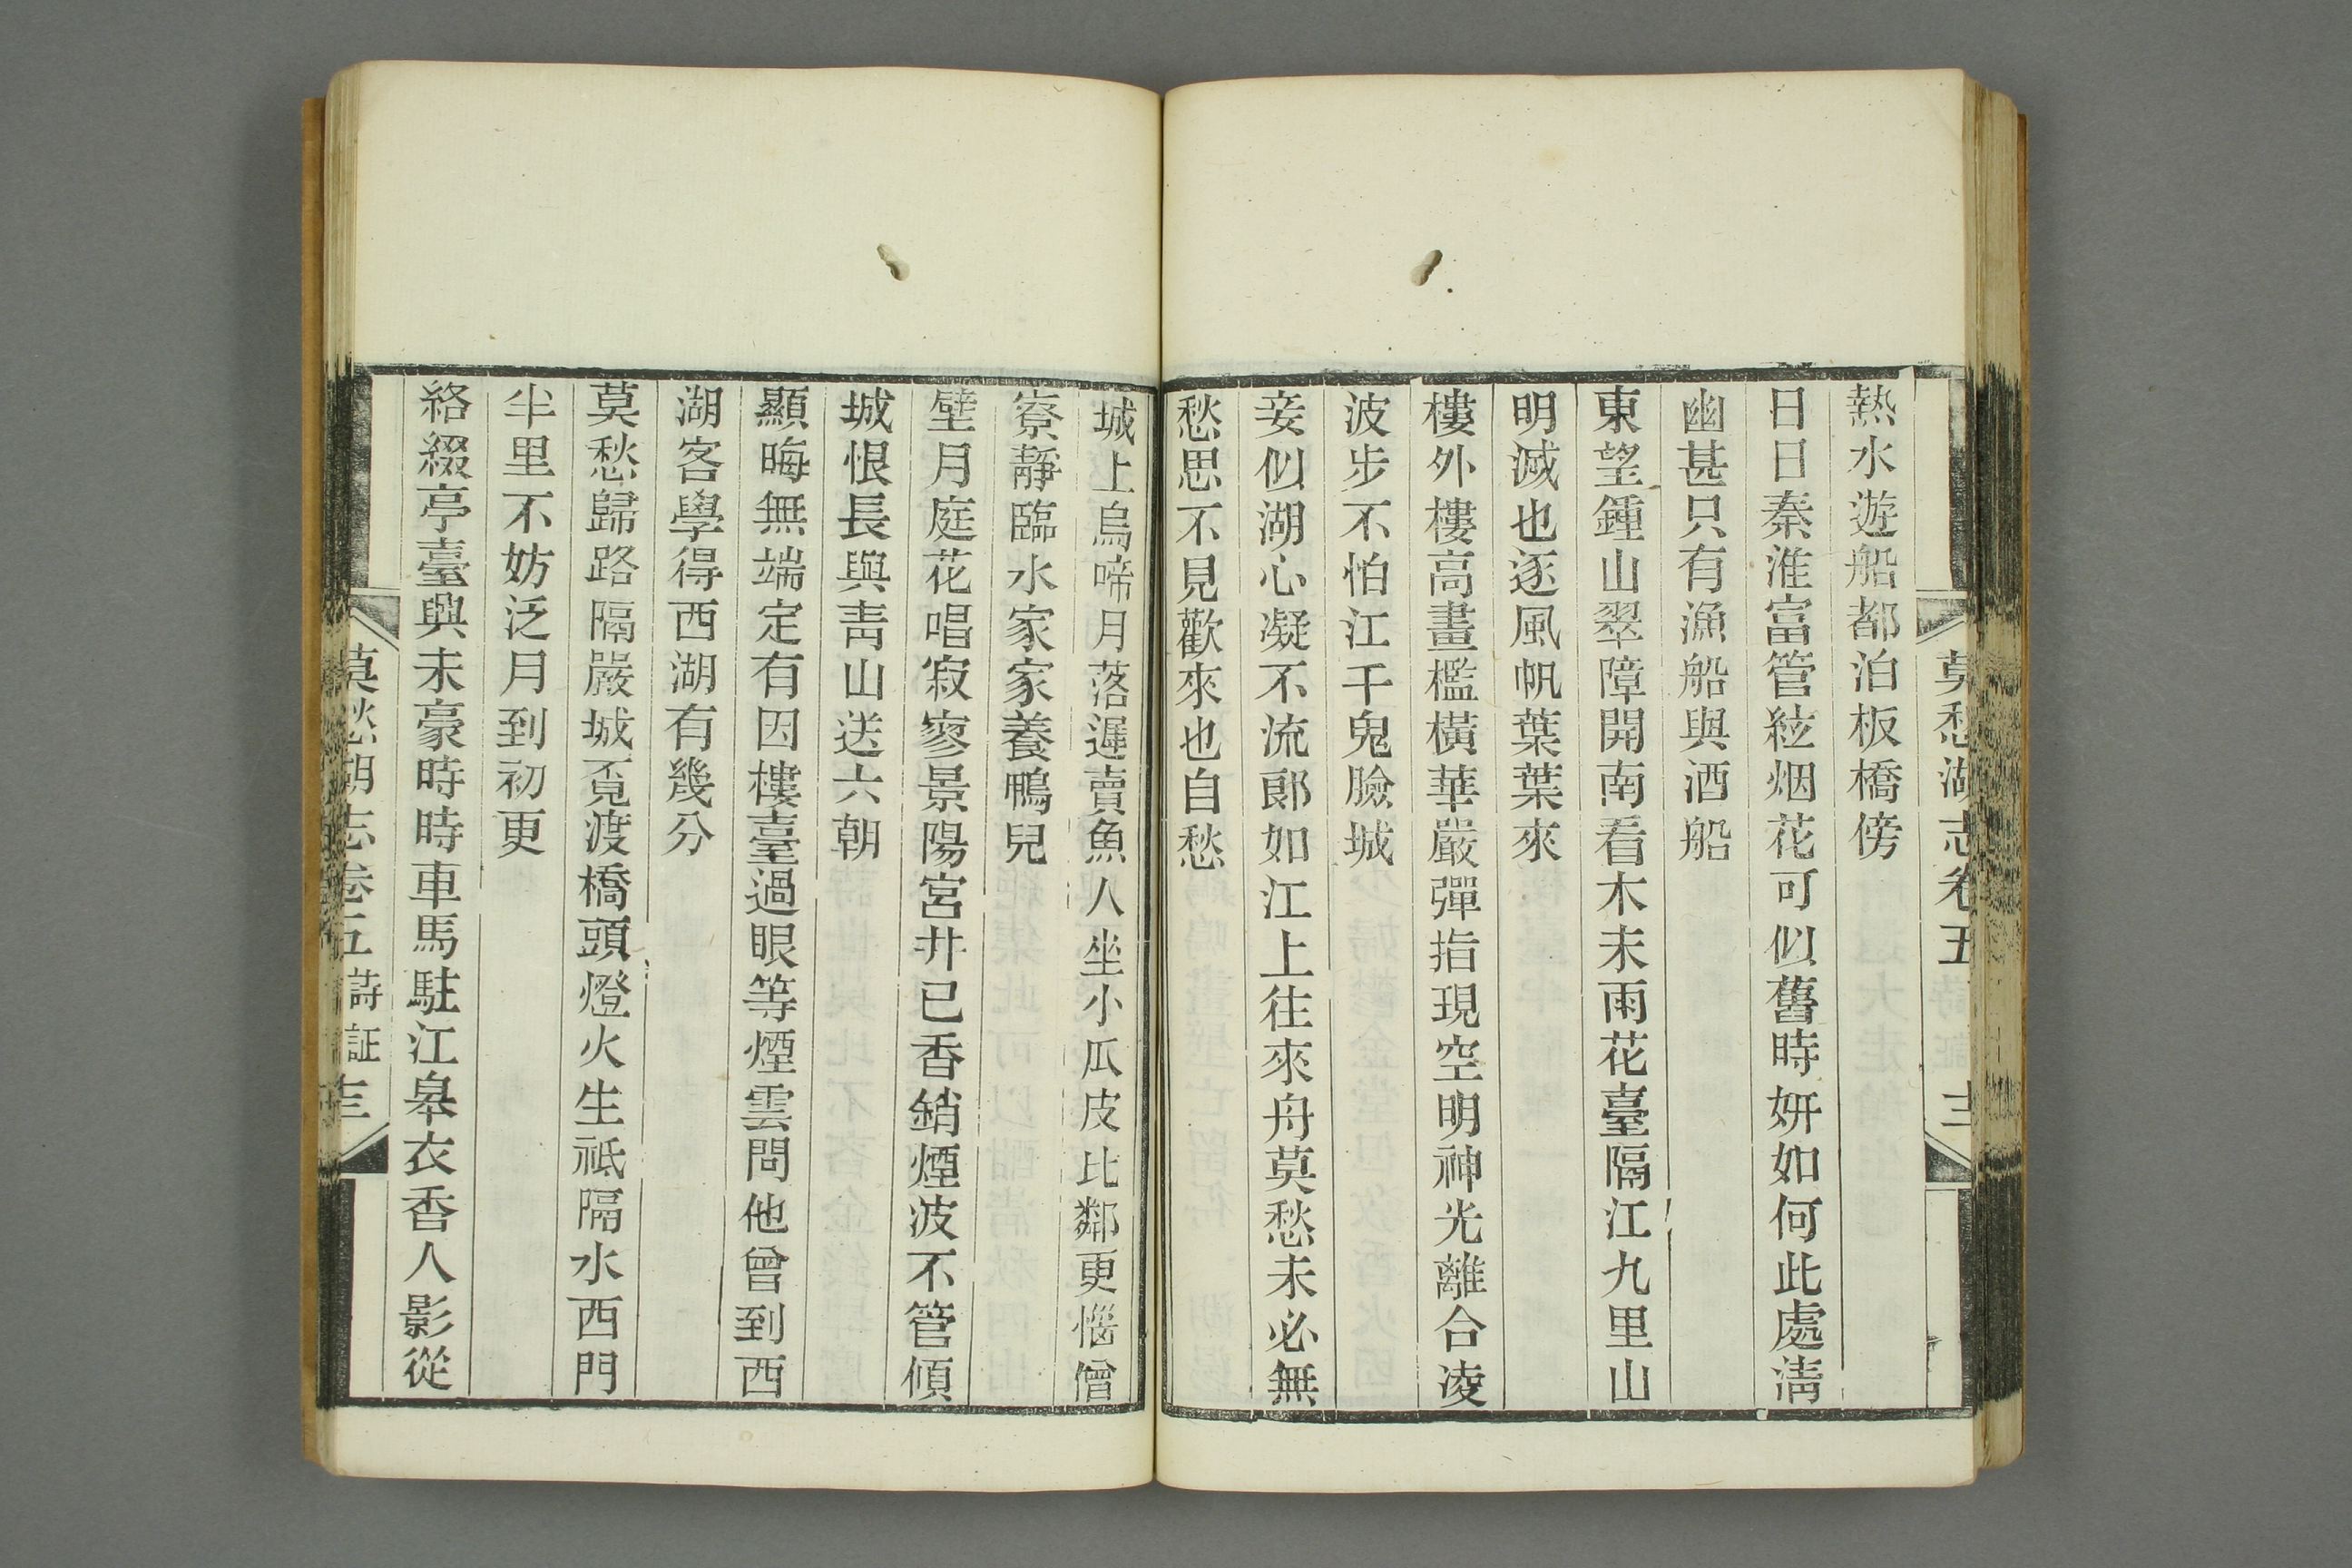 莫愁湖志卷五
熱水遊船都泊板橋傍
日日秦淮富管絃烟花可似舊時妍如何此處淸
幽甚只有漁船與酒船
東望鍾山翠障開南看木末雨花臺隔江九里山
明滅也逐風帆葉葉來
樓外樓高畫檻橫華嚴彈指現空明神光離合凌
波步不怕江干鬼臉城
妾似湖心凝不流郞如江上往來舟莫愁未必無
愁思不見歡來也自愁
城上烏啼月落遲賣魚人坐小瓜皮比鄰更惱僧
寮靜臨水家家養鴨兒
壁月庭花唱寂寥景陽宮井已香銷煙波不管傾
城恨長與靑山送六朝
顯晦無端定有因樓臺過眼等煙雲問他曾到西
湖客學得西湖有幾分
莫愁歸路隔嚴城覓渡橋頭燈火生祇隔水西門
半里不妨泛月到初更
絡綴亭臺興未豪時時車馬駐江皋衣香人影從
莫愁湖志卷五 詩証